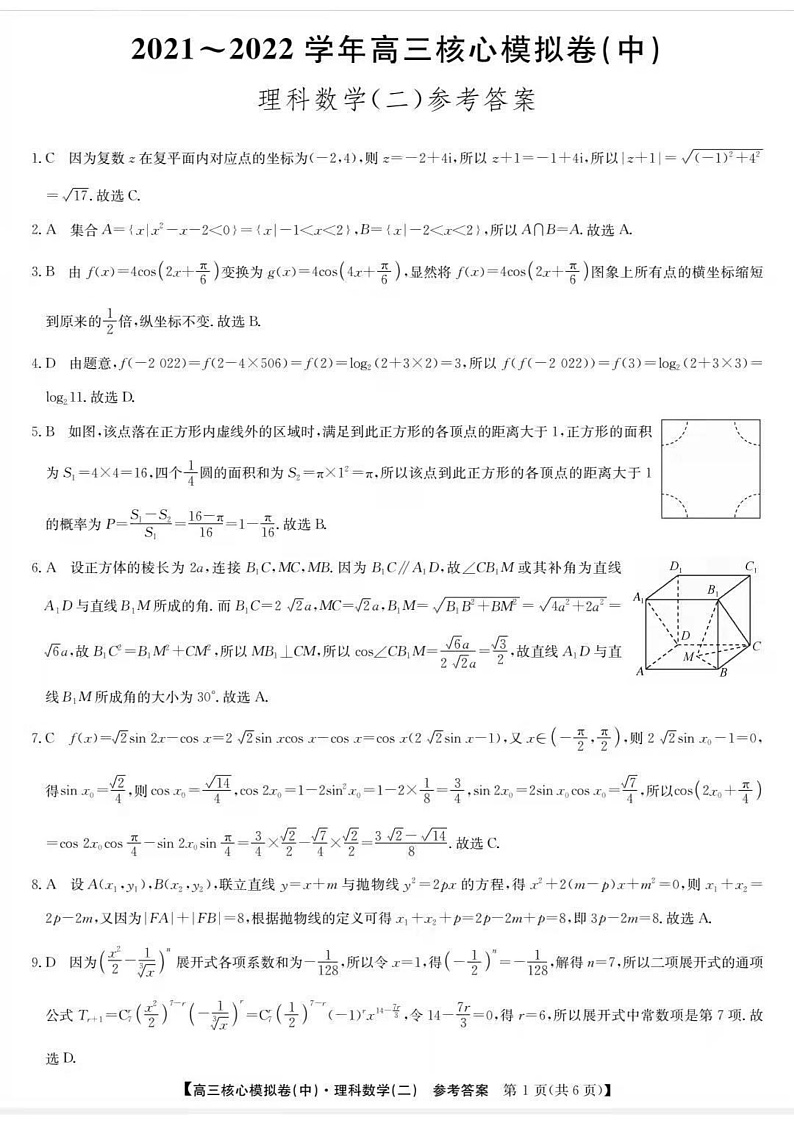 2021～2022 学年高三核心模拟卷(中)
理科数学(二)参考答案
1.C 因为复数 z 在复平面内对应点的坐标为(-2,4),则 z=-2+4i,所以 z+1=-1+4i,所以|z+1|=√((-1)²+4²)
=√17.故选 C.
2.A 集合 A={x|x²-x-2<0}={x|-1<x<2},B={x|-2<x<2},所以 A∩B=A.故选 A.
3.B 由 f(x)=4cos(2x+π/6)变换为 g(x)=4cos(4x+π/6),显然将 f(x)=4cos(2x+π/6)图象上所有点的横坐标缩短
到原来的1/2倍,纵坐标不变.故选 B.
4.D 由题意,f(-2 022)=f(2-4×506)=f(2)=log₂(2+3×2)=3,所以 f(f(-2 022))=f(3)=log₂(2+3×3)=
log₂11.故选 D.
5.B 如图,该点落在正方形内虚线外的区域时,满足到此正方形的各顶点的距离大于 1,正方形的面积
为 S₁=4×4=16,四个1/4圆的面积和为 S₂=π×1²=π,所以该点到此正方形的各顶点的距离大于 1
的概率为 P=(S₁-S₂)/S₁=(16-π)/16=1-π/16.故选 B.
6.A 设正方体的棱长为 2a,连接 B₁C,MC,MB.因为 B₁C∥A₁D,故∠CB₁M 或其补角为直线
A₁D 与直线 B₁M 所成的角.而 B₁C=2√2a,MC=√2a,B₁M=√(B₁B²+BM²)=√(4a²+2a²)=
√6a,故 B₁C²=B₁M²+CM²,所以 MB₁⊥CM,所以 cos∠CB₁M=√6a/2√2a=√3/2,故直线 A₁D 与直
线 B₁M 所成角的大小为 30°.故选 A.
D₁ C₁
A₁ B₁
D C
M
A B
7.C f(x)=√2sin 2x-cos x=2√2sin xcos x-cos x=cos x(2√2sin x-1),又 x∈(-π/2,π/2),则 2√2sin x₀-1=0,
得sin x₀=√2/4,则 cos x₀=√14/4,cos 2x₀=1-2sin²x₀=1-2×1/8=3/4,sin 2x₀=2sin x₀cos x₀=√7/4,所以cos(2x₀+π/4)
=cos 2x₀cos π/4-sin 2x₀sin π/4=3/4×√2/2-√7/4×√2/2=(3√2-√14)/8.故选 C.
8.A 设 A(x₁,y₁),B(x₂,y₂),联立直线 y=x+m 与抛物线 y²=2px 的方程,得 x²+2(m-p)x+m²=0,则 x₁+x₂=
2p-2m,又因为|FA|+|FB|=8,根据抛物线的定义可得 x₁+x₂+p=2p-2m+p=8,即 3p-2m=8.故选 A.
9.D 因为(x²/2-1/∛x)ⁿ 展开式各项系数和为-1/128,所以令 x=1,得(-1/2)ⁿ=-1/128,解得 n=7,所以二项展开式的通项
公式 Tᵣ₊₁=C₇ʳ(x²/2)⁷⁻ʳ(-1/∛x)ʳ=C₇ʳ(1/2)⁷⁻ʳ(-1)ʳx^(14-7r/3),令 14-7r/3=0,得 r=6,所以展开式中常数项是第 7 项.故
选 D.
【高三核心模拟卷(中)·理科数学(二) 参考答案 第 1 页(共 6 页)】